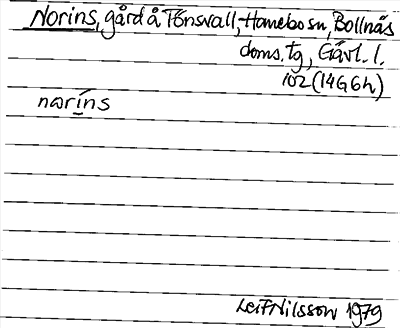 Norins, gård å Tönsvall, Hanebo sn, Bollnäs
doms. tg, Gävl. l.
102 (14G6h)
naríns
Leif Nilsson 1979